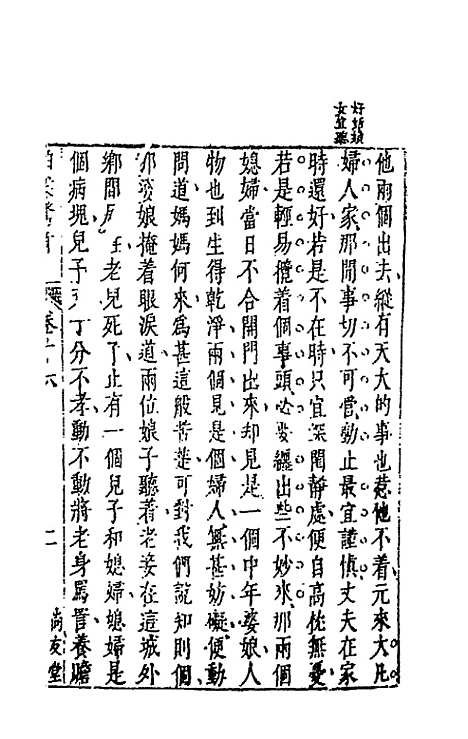 好姑娘
女宜聽
他兩個出去縱有天大的事也惹他不着元來大凡
婦人家那閒事切不可管動止最宜謹慎丈夫在家
時還好若是不在時只宜深閨靜處便自高枕無憂
若是輕易攬着個事頭必要纏出些不妙來那兩個
媳婦當日不合開門出來却見是一個中年婆娘人
物也到生得乾淨兩個見是個婦人無甚妨礙便動
問道媽媽何來爲甚這般苦楚可對我們說知則個
那婆娘掩着眼淚道兩位娘子聽着老妾在這城外
鄉間居住老兒死了止有一個兒子和媳婦媳婦是
個病塊兒子又十分不孝動不動將老身罵詈養贍
拍案驚奇 卷十六 二 尚友堂